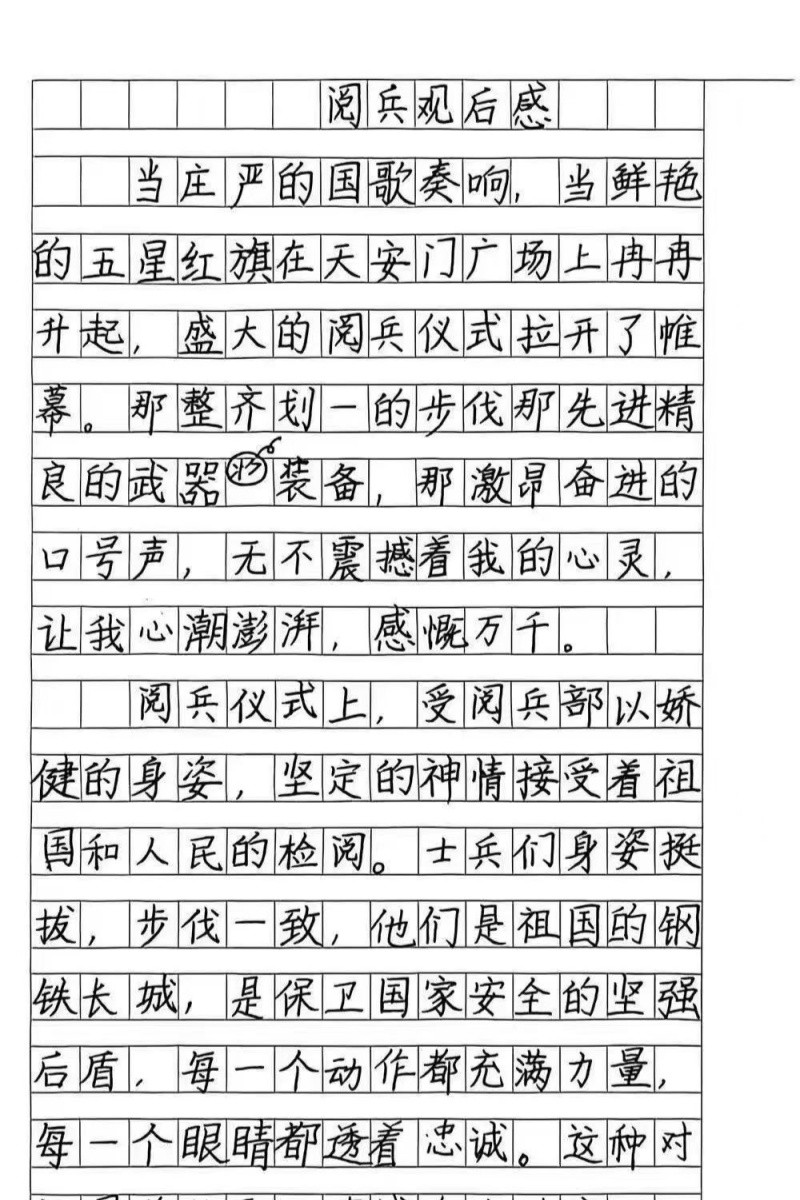 阅兵观后感
当庄严的国歌奏响，当鲜艳
的五星红旗在天安门广场上冉冉
升起，盛大的阅兵仪式拉开了帷
幕。那整齐划一的步伐那先进精
良的武器装备，那激昂奋进的
口号声，无不震撼着我的心灵，
让我心潮澎湃，感慨万千。
阅兵仪式上，受阅兵部以娇
健的身姿，坚定的神情接受着祖
国和人民的检阅。士兵们身姿挺
拔，步伐一致，他们是祖国的钢
铁长城，是保卫国家安全的坚强
后盾，每一个动作都充满力量，
每一个眼睛都透着忠诚。这种对